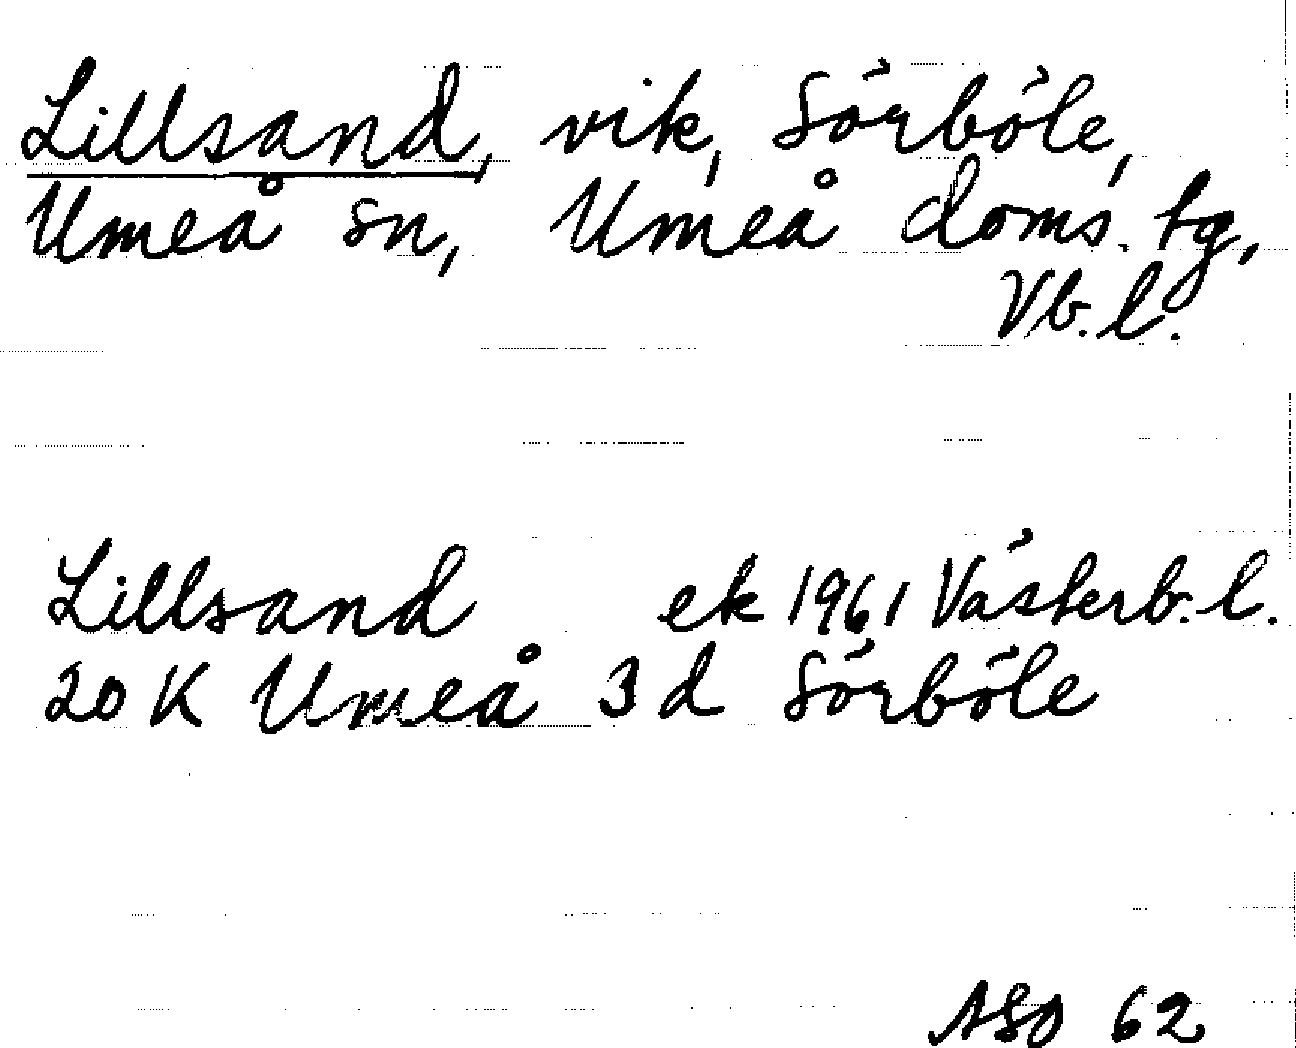 Lillsand, vik, Sörböle,
Umeå sn, Umeå doms. tg,
Vb. l.
Lillsand ek 1961 Västerb. l.
20 K Umeå 3 d Sörböle
ASO 62